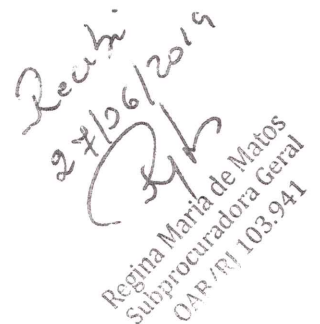 Recebi
27/06/2019
Regina Maria de Matos
Subprocuradora Geral
OAB/RJ 103.941